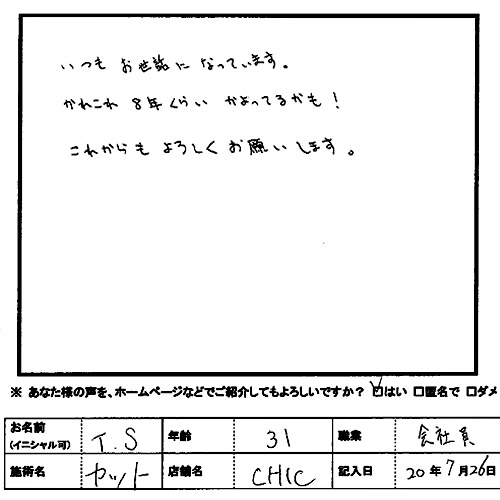 いつも お世話に なっています。
かれこれ 8年くらい かよってるかも!
これからも よろしく お願いします。
※ あなた様の声を、ホームページなどでご紹介してもよろしいですか? ☑はい □匿名で □ダメ
お名前 (イニシャル可) T.S 年齢 31 職業 会社員
施術名 カット 店舗名 CHIC 記入日 20年7月26日